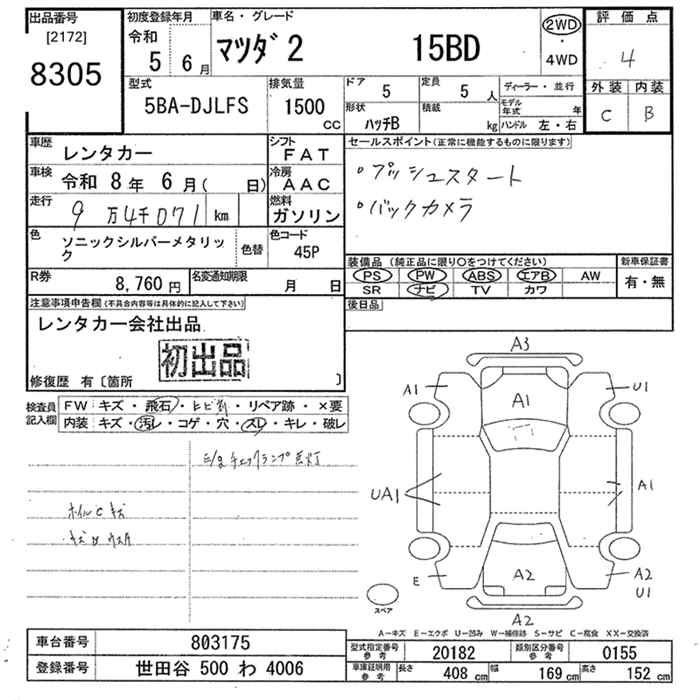 出品番号
[2172]
8305
初度登録年月
令和
5 6月
車名・グレード
マツダ2 15BD
2WD
・
4WD
評価点
4
外装 内装
C B
型式
5BA-DJLFS
排気量
1500
CC
ドア
5
定員
5 人
形状
ハッチB
積載
kg
ディーラー・並行
モデル年式 年
ハンドル 左・右
車歴
レンタカー
シフト
FAT
車検
令和 8年 6月( 日)
冷房
AAC
走行
9万4千071 km
燃料
ガソリン
色
ソニックシルバーメタリック
色替
色コード
45P
R券
8,760円
名変通知期限
月 日
セールスポイント(正常に機能するものに限ります)
・プッシュスタート
・バックカメラ
装備品 (純正品に限り○をつけてください)
PS PW ABS エアB AW
SR ナビ TV カワ
新車保証書
有・無
後日品
注意事項申告欄(不具合内容等は具体的に記入して下さい)
レンタカー会社出品
初出品
修復歴 有〔箇所 〕
検査員記入欄
FW キズ・飛石・ヒビ割・リペア跡・×要
内装 キズ・汚レ・コゲ・穴・スレ・キレ・破レ
E/g チェックランプ点灯
ホイルCキズ
A3
A1
A1
U1
UA1
A1
E
A2
A2
U1
A2
スペア
A-キズ E-エクボ U-凹み W-補修跡 S-サビ C-腐食 XX-交換済
車台番号
803175
登録番号
世田谷 500 わ 4006
型式指定番号 参考
20182
類別区分番号 参考
0155
車庫証明用 参考
長さ 408 cm 幅 169 cm 高さ 152 cm